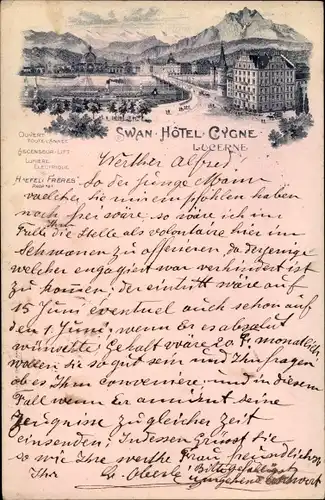 SWAN·HÔTEL·CYGNE
LUCERNE
OUVERT
TOUTE L'ANNÉE
ASCENSEUR-LIFT
LUMIÈRE
ELECTRIQUE
HAEFELI FRÈRES
PROPR.
Werther Alfred!
So der junge Mann
welcher Sie mir empfohlen haben
noch frei wäre, so wäre ich im
Falle Ihm die Stelle als volontaire hier im
Schwanen zu offerieren, da derjenige
welcher engagiert war verhindert ist
zu kommen; der eintritt wäre auf
15 Juni eventuel auch schon auf
den 1. Juni, wenn Er es absolut
wünschte; Gehalt wäre 20 Fr. monatlich
wollen Sie so gut sein und Ihn fragen
ob es Ihm conveniere und in diesem
Fall wenn Er annimt seine
Zeugnisse zu gleicher Zeit
einsenden; Indessen Grüsst Sie
so wie Ihre werthe Frau freundlich
Ihr G. Oberle Bitte gefälligst
umgehend Antwort